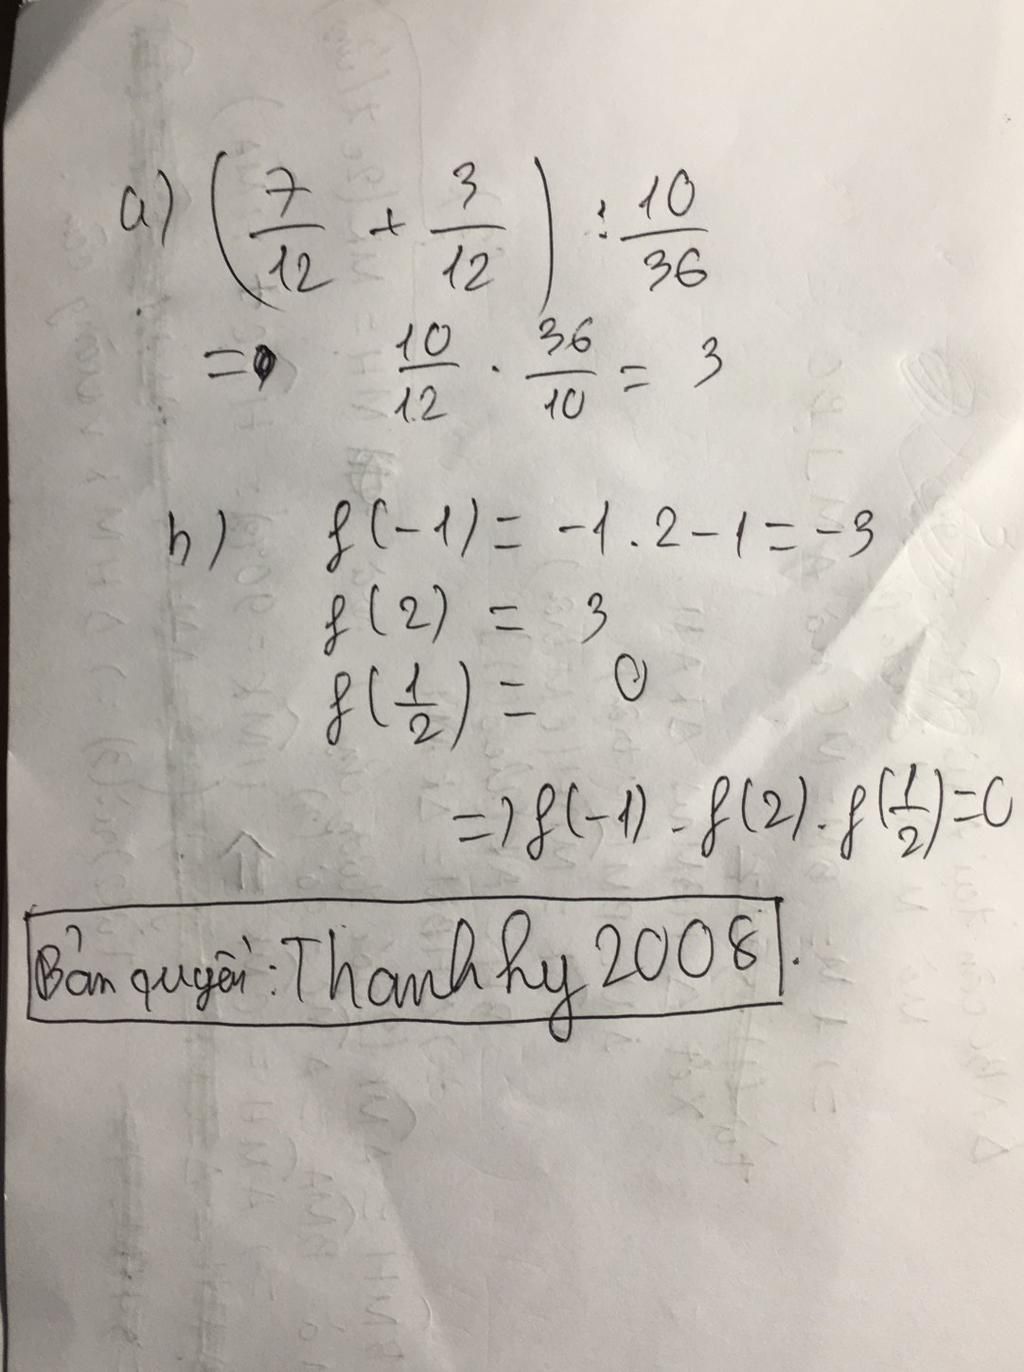 a) (7/12 + 3/12) : 10/36
= 10/12 . 36/10 = 3
b) f(-1) = -1.2-1 = -3
f(2) = 3
f(1/2) = 0
=> f(-1) . f(2) . f(1/2) = 0
Bản quyền: Thanh hy 2008.